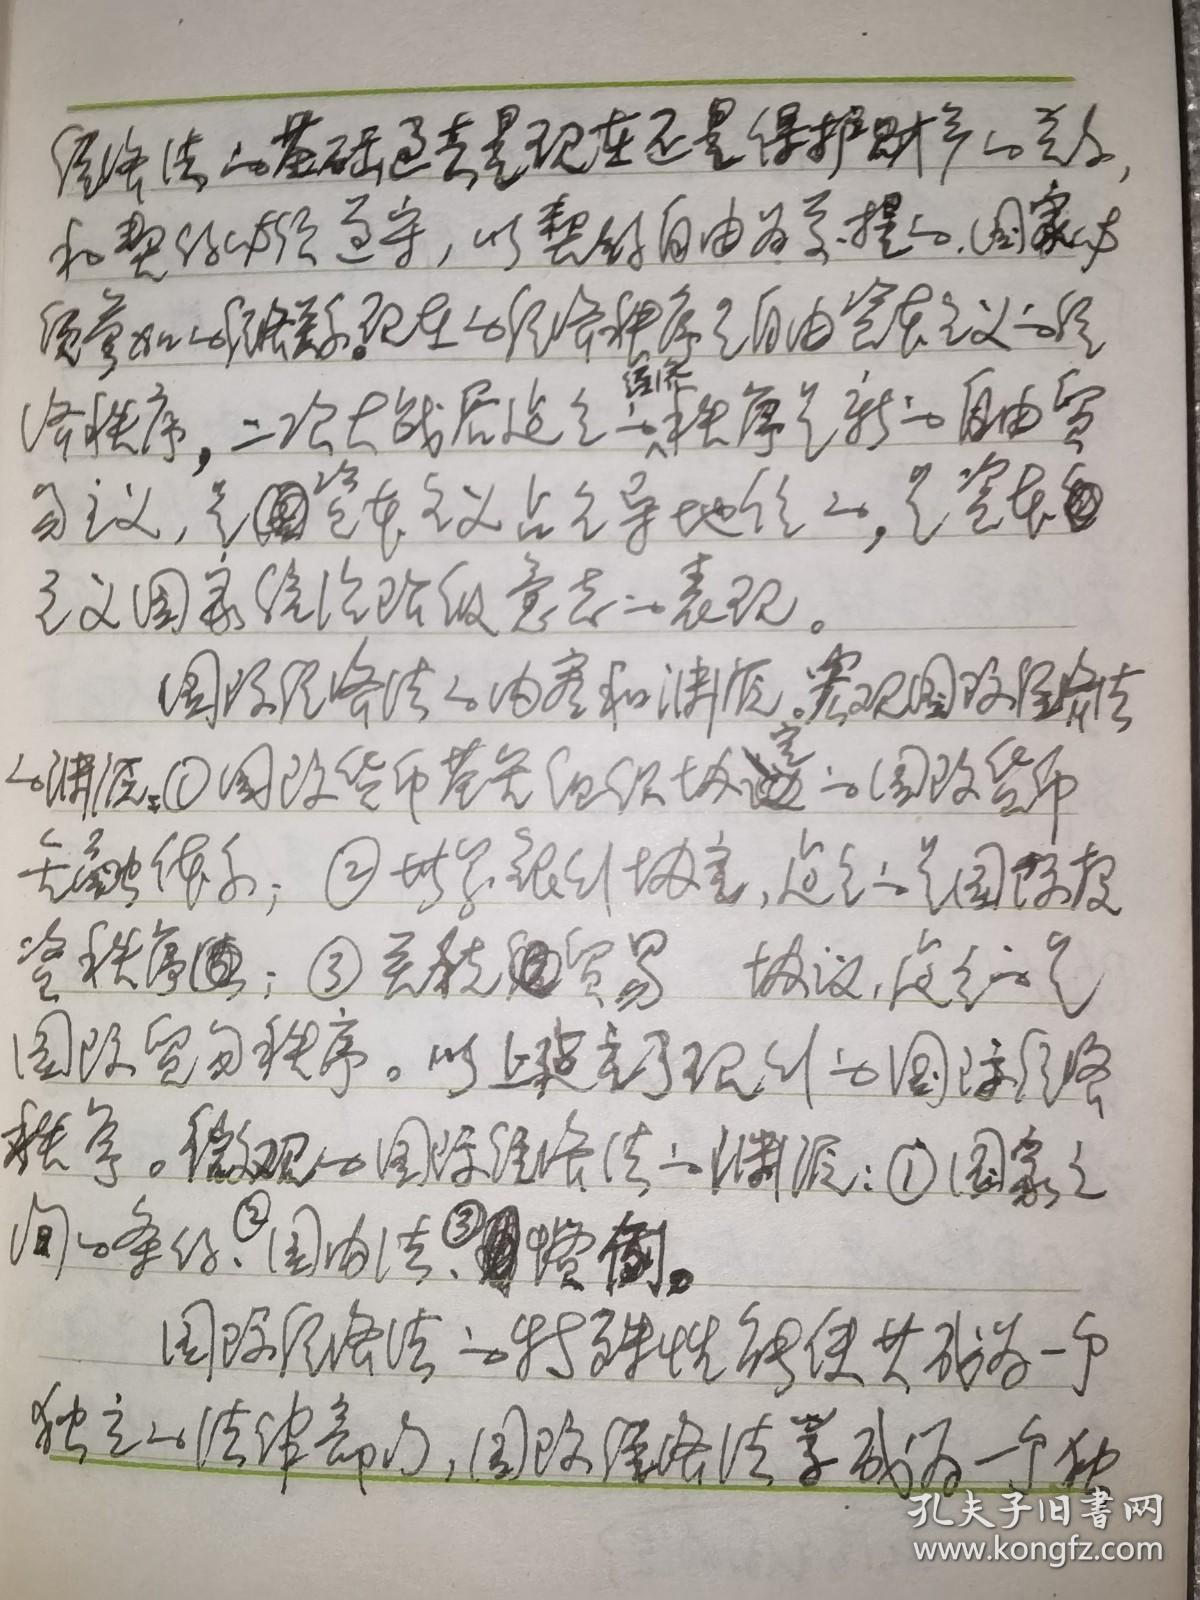 经济法的基础过去是现在还是保护财产的关系,
和契约必须遵守,以契约自由为前提的.国家必
须参加的经济关系。现在的经济秩序是自由资本主义的经
济秩序,二次大战后建立的经济秩序是新的自由贸
易主义,是资本主义占主导地位的,是资本
主义国家统治阶级意志的表现。
国际经济法的内容和渊源。宏观国际经济法
的渊源:①国际货币基金组织协定的国际货币
金融体系;②世界银行协定,建立的是国际投
资秩序;③关税贸易 协议,建立的是
国际贸易秩序。以上规定了现行的国际经济
秩序。微观的国际经济法的渊源:①国家之
间的条约、②国内法、③惯例。
国际经济法的特殊性能使其成为一个
独立的法律部门,国际经济法学成为一个独
孔夫子旧书网
www.kongfz.com